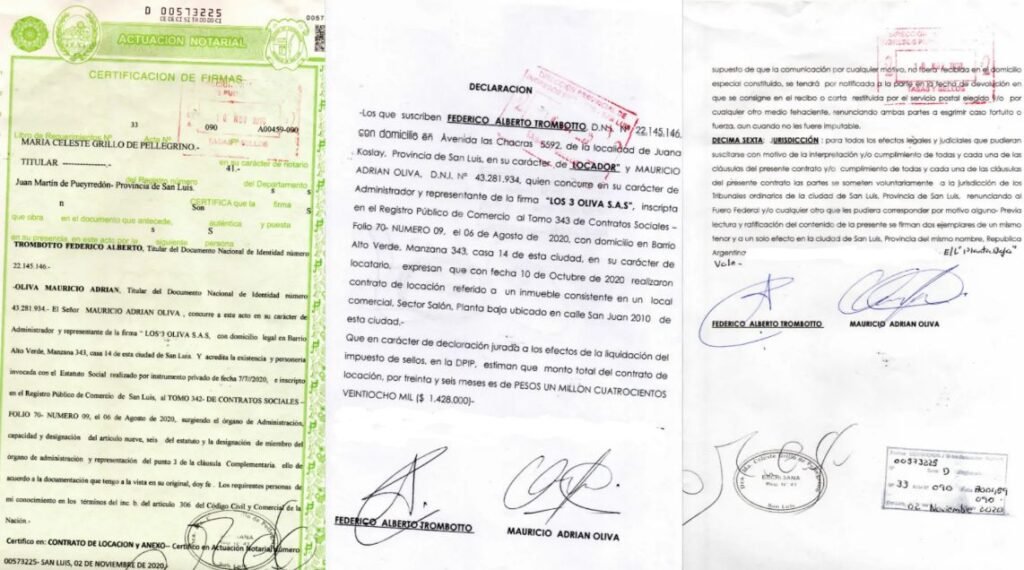 D 00573225
ACTUACION NOTARIAL
CERTIFICACION DE FIRMAS
33 090 A00459-090
Libro de Requerimientos N° Acta N°
MARIA CELESTE GRILLO DE PELLEGRINO.-
en su carácter de notario
TITULAR ---------------.- 41.-
Registro número del Departamento
Juan Martin de Pueyrredón- Provincia de San Luis. s
n CERTIFICA que la firma s
que obra en el documento que antecede, Son auténtica y puesta
s S
en su presencia, en este acto por la siguiente persona
TROMBOTTO FEDERICO ALBERTO, Titular del Documento Nacional de Identidad número
22.145.146.-
-OLIVA MAURICIO ADRIAN, Titular del Documento Nacional de Identidad número
43.281.934.- El Señor MAURICIO ADRIAN OLIVA , concurre a este acto en su carácter de
Administrador y representante de la firma " LOS'3 OLIVA S.A.S, con domicilio legal en Barrio
Alto Verde, Manzana 343, casa 14 de esta ciudad de San Luis. Y acredita la existencia y personería
invocada con el Estatuto Social realizado por instrumento privado de fecha 7/7/2020, e inscripto
en el Registro Público de Comercio de San Luis, al TOMO 342- DE CONTRATOS SOCIALES –
FOLIO 70- NUMERO 09, el 06 de Agosto de 2020, surgiendo el órgano de Administración,
capacidad y designación del articulo nueve, seis del estatuto y la designación de miembro del
órgano de administración y representación del punto 3 de la cláusula Complementaria. ello de
acuerdo a la documentación que tengo a la vista en su original, doy fe . Los requirentes personas de
mi conocimiento en los términos del inc. b. del articulo 306 del Código Civil y Comercial de la
Nación.-
Certifico en: CONTRATO DE LOCACION y ANEXO-- Certifico en Actuación Notarial número
00573225- SAN LUIS, 02 DE NOVIEMBRE DE 2020,-
DECLARACION
-Los que suscriben FEDERICO ALBERTO TROMBOTTO, D.N.I. N° 22.145.146.
con domicilio en Avenida las Chacras 5592, de la localidad de Juana
Koslay, Provincia de San Luis, en su carácter de "LOCADOR" y MAURICIO
ADRIAN OLIVA. D.N.I. N° 43.281.934, quien concurre en su carácter de
Administrador y representante de la firma "LOS 3 OLIVA S.A.S", inscripta
en el Registro Público de Comercio al Tomo 343 de Contratos Sociales –
Folio 70- NUMERO 09, el 06 de Agosto de 2020, con domicilio en Barrio
Alto Verde, Manzana 343, casa 14 de esta ciudad, en su carácter de
locatario, expresan que con fecha 10 de Octubre de 2020 realizaron
contrato de locación referido a un inmueble consistente en un local
comercial, Sector Salón, Planta baja ubicado en calle San Juan 2010 de
esta ciudad.-
Que en carácter de declaración jurada a los efectos de la liquidación del
impuesto de sellos, en la DPIP, estiman que monto total del contrato de
locación, por treinta y seis meses es de PESOS UN MILLÓN CUATROCIENTOS
VEINTIOCHO MIL ($ 1.428.000)-
FEDERICO ALBERTO TROMBOTTO
MAURICIO ADRIAN OLIVA
supuesto de que la comunicación por cualquier motivo, no fuera recibida en el domicilio
especial constituido, se tendrá por notificada a la parte en la fecha de devolución en
que se consigne en el recibo o carta restituida por el servicio postal elegido y/o por
cualquier otro medio fehaciente, renunciando ambas partes a esgrimir caso fortuito o
fuerza, aun cuando no les fuere imputable.
DECIMA SEXTA: JURISDICCIÓN : para todos los efectos legales y judiciales que pudieran
suscitarse con motivo de la interpretación y/o cumplimiento de todas y cada una de las
cláusulas del presente contrato y/o cumplimiento de todas y cada una de las cláusulas
del presente contrato las partes se someten voluntariamente a la jurisdicción de los
Tribunales ordinarios de la ciudad de San Luis, Provincia de San Luis, renunciando al
Fuero Federal y/o cualquier otro que les pudiera corresponder por motivo alguno- Previa
lectura y ratificación del contenido de la presente se firman dos ejemplares de un mismo
tenor y a un solo efecto en la ciudad de San Luis, Provincia del mismo nombre, Republica
Argentina E/L "Planta Baja"
Vale.-
FEDERICO ALBERTO TROMBOTTO
MAURICIO ADRIAN OLIVA
TASAS Y SELLOS
ESCRIBANA
San Luis
00573225
33 090 A00459
090
02 Noviembre 2020